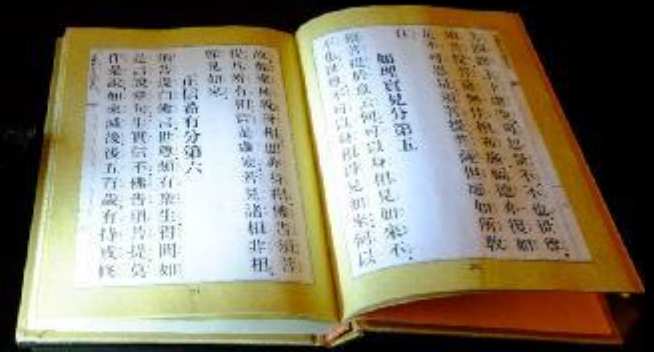 方四維上下虛空可思量不不也世尊
須菩提菩薩無住相布施福德亦復如
是不可思量須菩提菩薩但應如所教
住
如理實見分第五
須菩提於意云何可以身相見如來不
不也世尊不可以身相得見如來何以
故如來所說身相即非身相佛告須菩
提凡所有相皆是虛妄若見諸相非相
即見如來
正信希有分第六
須菩提白佛言世尊頗有眾生得聞如
是言說章句生實信不佛告須菩提莫
作是說如來滅後後五百歲有持戒修